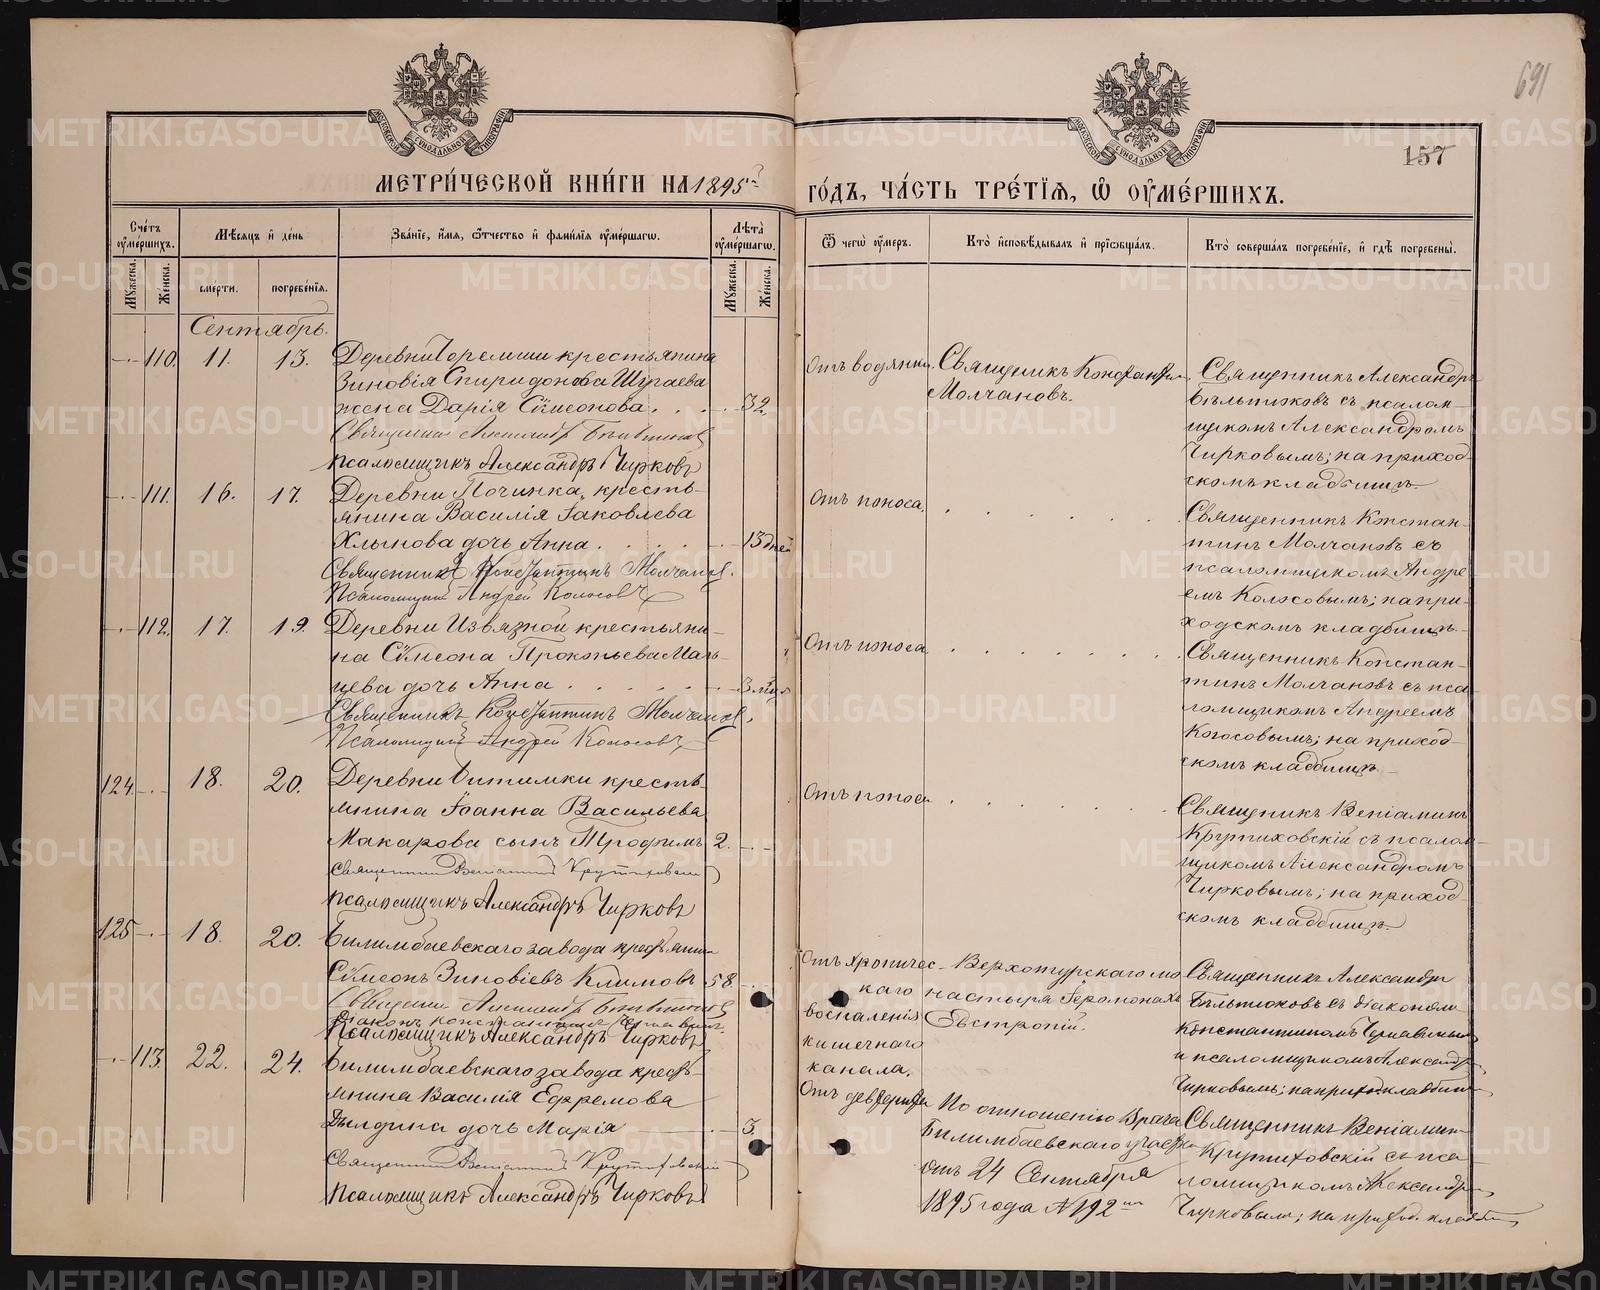 691
157
МЕТРИ́ЧЕСКОЙ КНИ́ГИ НА 1895й
ГО́ДЪ, ЧА́СТЬ ТРЕ́ТІѦ, Ѡ҆ ОУ҆МЕ́РШИХЪ.
Сче́тъ оу҆ме́ршихъ.
Мѣ́сяцъ и҆ де́нь
Зва́нїе, и҆́мѧ, ѻ҆́тчество и҆ фами́лїѧ оу҆ме́ршагѡ.
Лѣ́та оу҆ме́ршагѡ.
Ѿ чегѡ̀ оу҆́меръ.
Кто̀ и҆сповѣ́дывалъ и҆ прїѡбща́лъ.
Кто̀ соверша́лъ погребе́нїе, и҆ гдѣ̀ погребены̀.
Му́жеска.
Же́нска.
сме́рти.
погребе́нїѧ.
Му́жеска.
Же́нска.
Сентябрь.
110. 11. 13. Деревни крестьянина
Зиновія Спиридонова Шугаева
жена Дарія Сѵмеонова. 32.
Псаломщикъ Александръ Чирковъ
Отъ водянки.
Священникъ Константинъ
Молчановъ.
Священникъ Александръ
Бѣльтюковъ съ псалом-
щикомъ Александромъ
Чирковымъ; на приход-
скомъ кладбищѣ.
111. 16. 17. Деревни Починка, кресть-
янина Василія Іаковлева
Хлынова дочь Анна. 13 дней
Священникъ Константинъ Молчановъ.
Псаломщикъ Андрей Колосовъ
Отъ поноса.
Священникъ Констан-
тинъ Молчановъ съ
псаломщикомъ Андре-
емъ Колосовымъ; на при-
ходскомъ кладбищѣ.
112. 17. 19. Деревни Извязной крестьяни-
на Сѵмеона Прокопьева Маль-
цева дочь Анна. 3 м.
Священникъ Константинъ Молчановъ.
Псаломщикъ Андрей Колосовъ
Отъ поноса.
Священникъ Констан-
тинъ Молчановъ съ пса-
ломщикомъ Андреемъ
Колосовымъ; на приход-
скомъ кладбищѣ.
124. 18. 20. Деревни Битимки кресть-
янина Іоанна Васильева
Макарова сынъ Трофимъ 2.
Священникъ Веніаминъ Крутиховскій
Псаломщикъ Александръ Чирковъ
Отъ поноса.
Священникъ Веніаминъ
Крутиховскій съ псалом-
щикомъ Александромъ
Чирковымъ; на приход-
скомъ кладбищѣ.
125. 18. 20. Билимбаевскаго завода крестьянинъ
Сѵмеонъ Зиновіевъ Климовъ 58.
Псаломщикъ Александръ Чирковъ
Отъ хроничес-
каго
воспаленія
кишечнаго
канала.
Верхотурскаго мо-
настыря Іеромонахъ
Евстропій.
Священникъ Александръ
Бѣльтюковъ съ діакономъ
Константиномъ
и псаломщикомъ Александр.
Чирковымъ; на приход. кладбищѣ
113. 22. 24. Билимбаевскаго завода кресть-
янина Василія Ефремова
Дылдина дочь Марія 3
Священникъ Веніаминъ Крутиховскій
Псаломщикъ Александръ Чирковъ
Отъ дифтерита
По отношенію Врача
Билимбаевскаго участка
отъ 24 Сентября
1895 года № 192
Священникъ Веніамин
Крутиховскій съ пса-
ломщикомъ Александр.
Чирковым; на приход. кладб.
METRIKI.GASO-URAL.RU